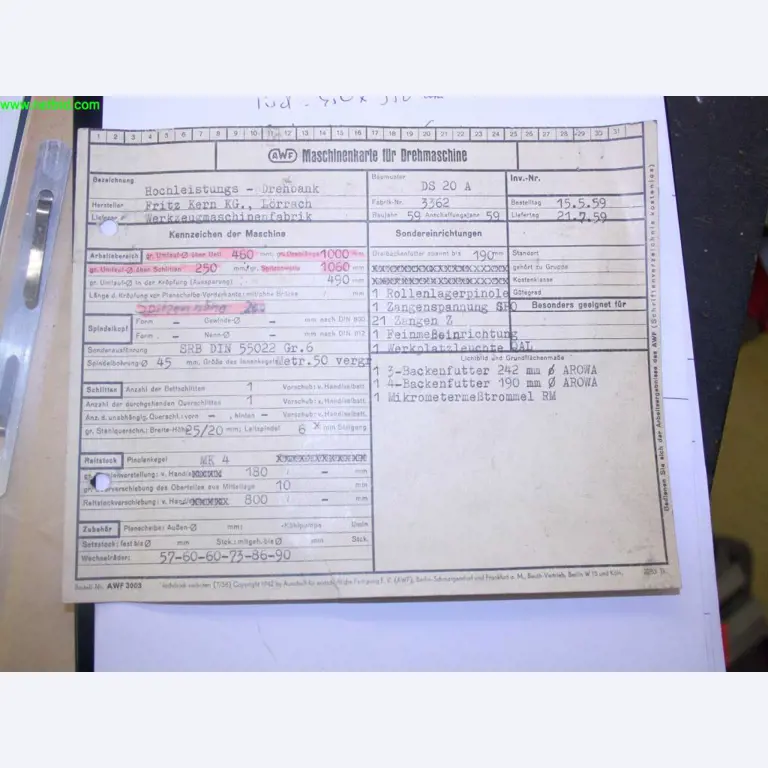 1 2 3 4 5 6 7 8 9 10 11 12 13 14 15 16 17 18 19 20 21 22 23 24 25 26 27 28 29 30 31
AWF Maschinenkarte für Drehmaschine
Bezeichnung Hochleistungs - Drehbank
Hersteller Fritz Kern KG., Lörrach
Werkzeugmaschinenfabrik
Baumuster DS 20 A
Fabrik-Nr. 3362
Baujahr 59 Anschaffungsjahr 59
Inv.-Nr.
Bestelltag 15.5.59
Liefertag 21.7.59
Kennzeichen der Maschine
Arbeitsbereich gr. Umlauf-Ø über Bett 460 mm; gr. Drehlänge 1000 mm
gr. Umlauf-Ø über Schlitten 250 mm/gr. Spitzenweite 1060 mm
gr. Umlauf-Ø in der Kröpfung (Aussparung) 490 mm
Länge d. Kröpfung von Planscheibe-Vorderkante: mit/ohne Brücke / mm
Spitzenhöhe
Spindelkopf Form – Gewinde-Ø – mm nach DIN 800
Form – Nenn-Ø – mm nach DIN 812
Sonderausführung SRB DIN 55022 Gr.6
Spindelbohrung-Ø 45 mm, Größe des Innenkegels Metr.50 vergr
Schlitten Anzahl der Bettschlitten 1 Vorschub: v. Hand/selbstt.
Anzahl der durchgehenden Querschlitten 1 Vorschub: v. Hand/selbstt.
Anz. d. unabhängig. Querschl.: vorn – , hinten – Vorschub: v. Hand/selbstt.
gr. Stahlquerschn.: Breite·Höhe 25/20 mm; Leitspindel 6 x mm Steigung
Reitstock Pinolenkegel MK 4 xxxxxxxxxxxxxx
180 / – mm
gr. Querverschiebung des Oberteiles aus Mittellage 10 mm
Reitstockverschiebung: v. Hand xxxxxx 800 / – mm
Zubehör Planscheibe: Außen-Ø mm; Kühlpumpe l/min
Setzstock: fest bis Ø mm Stck.; mitgeh. bis Ø mm Stck.
Wechselräder: 57-60-60-73-86-90
Sondereinrichtungen
Dreibackenfutter zuerst bis 190 mm
xxxxxxxxxxxxxxxxxxxxxx
xxxxxxxxxxxxxxxxxxxxxx
1 Rollenlagerpinole
1 Zangenspannung SPO
21 Zangen Z
1 Feinmeßeinrichtung
1 Werkplatzleuchte DAL
Standort
gehört zu Gruppe
Kostenklasse
Gütegrad
Besonders geeignet für
Lichtbild und Grundflächenmaße
1 3-Backenfutter 242 mm Ø AROWA
1 4-Backenfutter 190 mm Ø AROWA
1 Mikrometermeßtrommel RM
Bestell-Nr. AWF 3003
Bedienen Sie sich der Arbeitsergebnisse des AWF (Schriftenverzeichnis kostenlos)